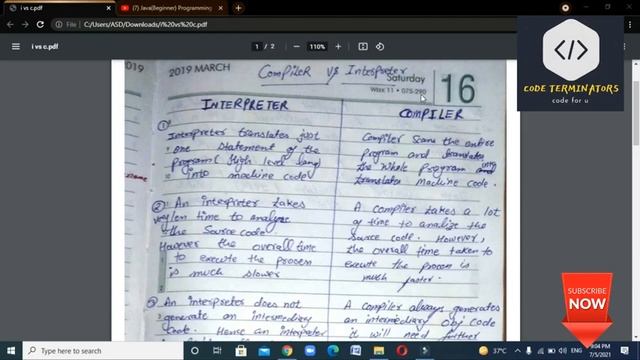 i vs c.pdf
(7) Java(Beginner) Programming
File
C:/Users/ASD/Downloads/i%20vs%20c.pdf
i vs c.pdf
1 / 2
110%
CODE TERMINATORS
code for u
019
2019 MARCH
Compiler vs Interpreter
Saturday
WEEK 11 • 075-290
16
INTERPRETER
COMPILER
①
Interpreter translates just
one statement of the
program (High level lang)
into machine code
Compiler Scans the entire
program and translates
the whole program into
translates machine code.
② An interpreter takes
very len time to analyze
the Source code.
However the overall time
to execute the process
is much slower
A compiler takes a lot
of time to analize the
source code. However,
the overall time taken to
execute the process is
much faster.
③ An interpreter does not
generate an intermediary
code. Hence an interpreter
A compiler always generates
an intermediary obj code
it will need further
SUBSCRIBE
NOW
Type here to search
37°C
ENG
9:04 PM
7/5/2021